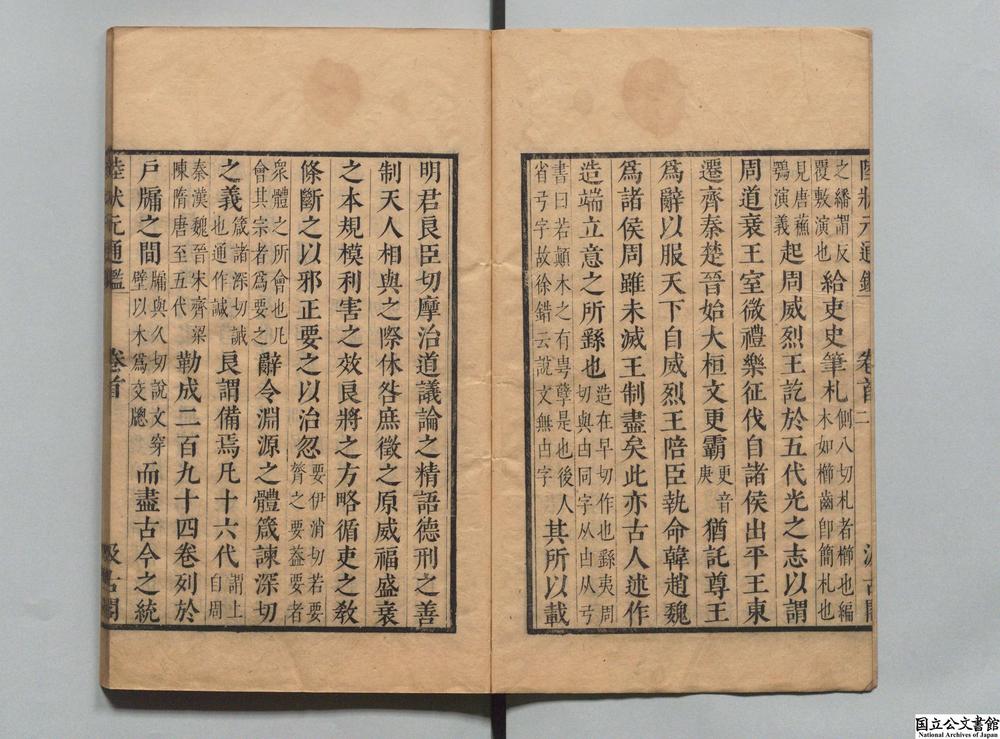 陸狀元通鑑 卷首 二 汲古閣
之繙謂反
覆敷演也
給吏史筆札
側八切札者櫛也編
木如櫛齒卽簡札也
見唐蘇
鶚演義
起周威烈王訖於五代光之志以謂
周道衰王室微禮樂征伐自諸侯出平王東
遷齊秦楚晉始大桓文更霸
更音
庚
猶託尊王
爲辭以服天下自威烈王陪臣執命韓趙魏
爲諸侯周雖未滅王制盡矣此亦古人述作
造端立意之所繇也
造在早切作也繇夷周
切與甴同字从甴从丂
書曰若顚木之有甹孽是也後人
省丂字故徐鍇云說文無甴字
其所以載
明君良臣切摩治道議論之精語德刑之善
制天人相與之際休咎庶徵之原威福盛衰
之本規模利害之效良將之方略循吏之敎
條斷之以邪正要之以治忽
要伊消切若要
膂之要葢要者
衆體之所會也凡
會其宗者爲要之
辭令淵源之體箴諫深切
之義
箴諸深切誡
也通作諴
良謂備焉凡十六代
謂上
自周
秦漢魏晉宋齊梁
陳隋唐至五代
勒成二百九十四卷列於
戶牖之間
牖與久切說文穿
壁以木爲交牕
而盡古今之統
陸狀元通鑑 卷首 汲古閣
国立公文書館
National Archives of Japan